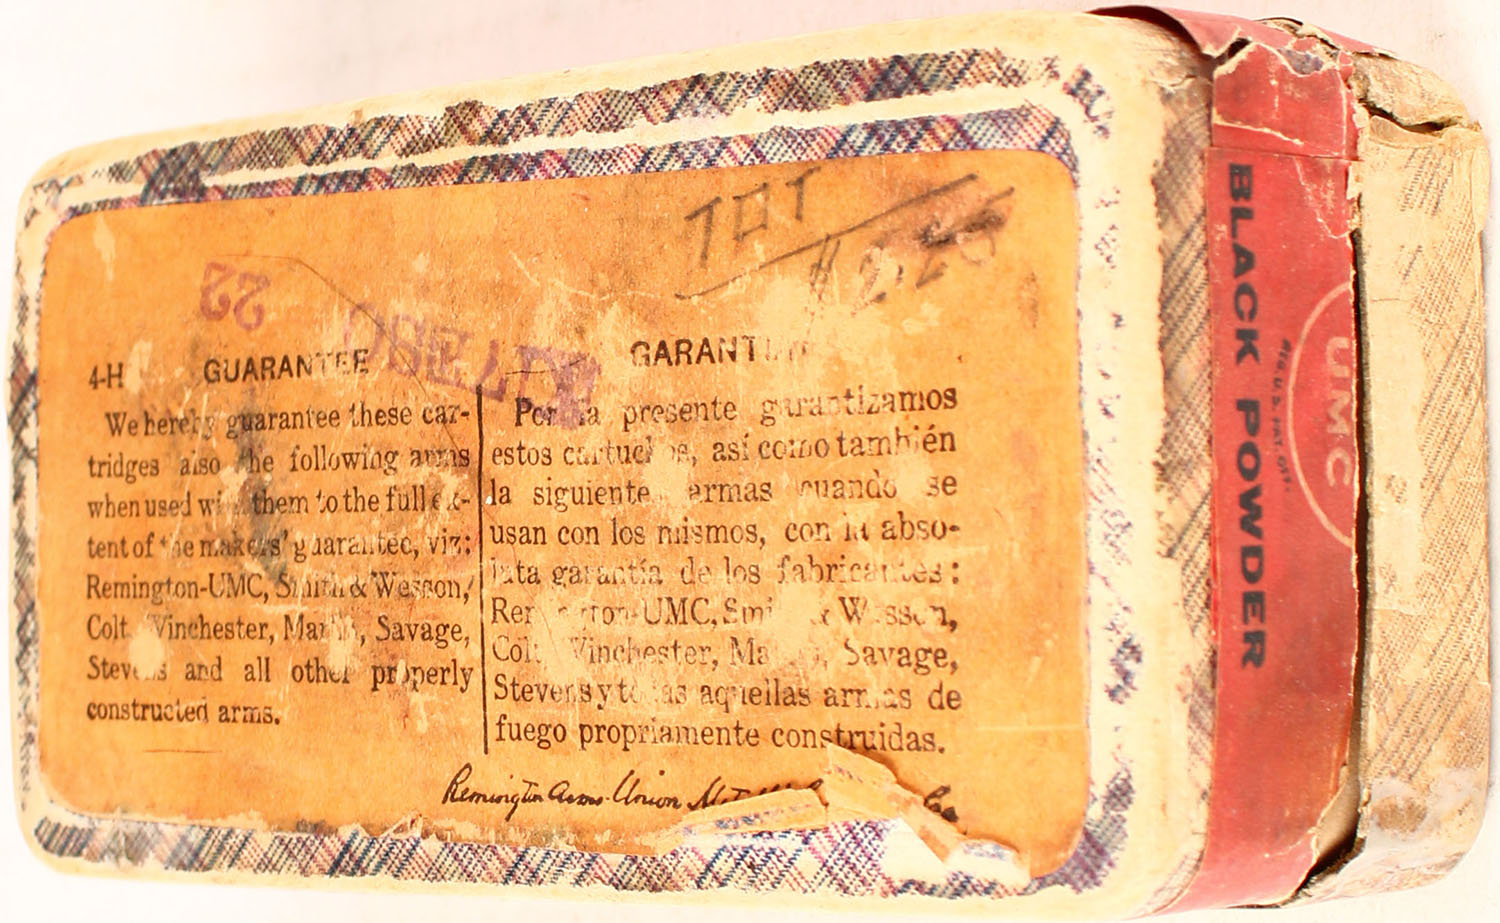 TOT
$2.20
22
4-H GUARANTEE
We hereby guarantee these car-
tridges also the following arms
when used with them to the full ex-
tent of the makers' guarantee, viz:
Remington-UMC, Smith & Wesson,
Colt, Winchester, Marlin, Savage,
Stevens and all other properly
constructed arms.
GARANT
Por la presente garantizamos
estos cartuchos, así como también
la siguiente armas cuando se
usan con los mismos, con la abso-
luta garantía de los fabricantes:
Remington-UMC, Smith & Wesson,
Colt, Winchester, Marlin, Savage,
Stevens y todas aquellas armas de
fuego propriamente construidas.
Remington Arms-Union Co
BLACK POWDER
UMC
REG. U.S. PAT. OFF.